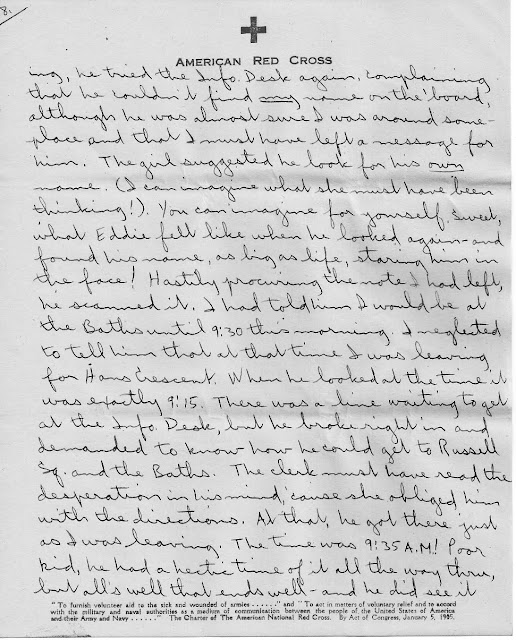 8.
AMERICAN RED CROSS
ing, he tried the Info. Desk again, complaining
that he couldn't find my name on the board,
although he was almost sure I was around some-
place and that I must have left a message for
him. The girl suggested he look for his own
name. (I can imagine what she must have been
thinking!). You can imagine for yourself, Sweet,
what Eddie felt like when he looked again - and
found his name, as big as life, staring him in
the face! Hastily procuring the note I had left,
he scanned it. I had told him I would be at
the Baths until 9:30 this morning. I neglected
to tell him that at that time I was leaving
for Hans Crescent. When he looked at the time it
was exactly 9:15. There was a line waiting to get
at the Info. Desk, but he broke right in and
demanded to know how he could get to Russell
Sq. and the Baths. The clerk must have read the
desperation in his mind, 'cause she obliged him
with the directions. At that, he got there just
as I was leaving. The time was 9:35 A.M! Poor
kid, he had a hectic time of it all the way thru,
but all's well that ends well - and he did see it
"To furnish volunteer aid to the sick and wounded of armies . . . . . ." and "To act in matters of voluntary relief and to accord
with the military and naval authorities as a medium of communication between the people of the United States of America
and their Army and Navy . . . . . ." The Charter of The American National Red Cross. By Act of Congress, January 5, 1905.